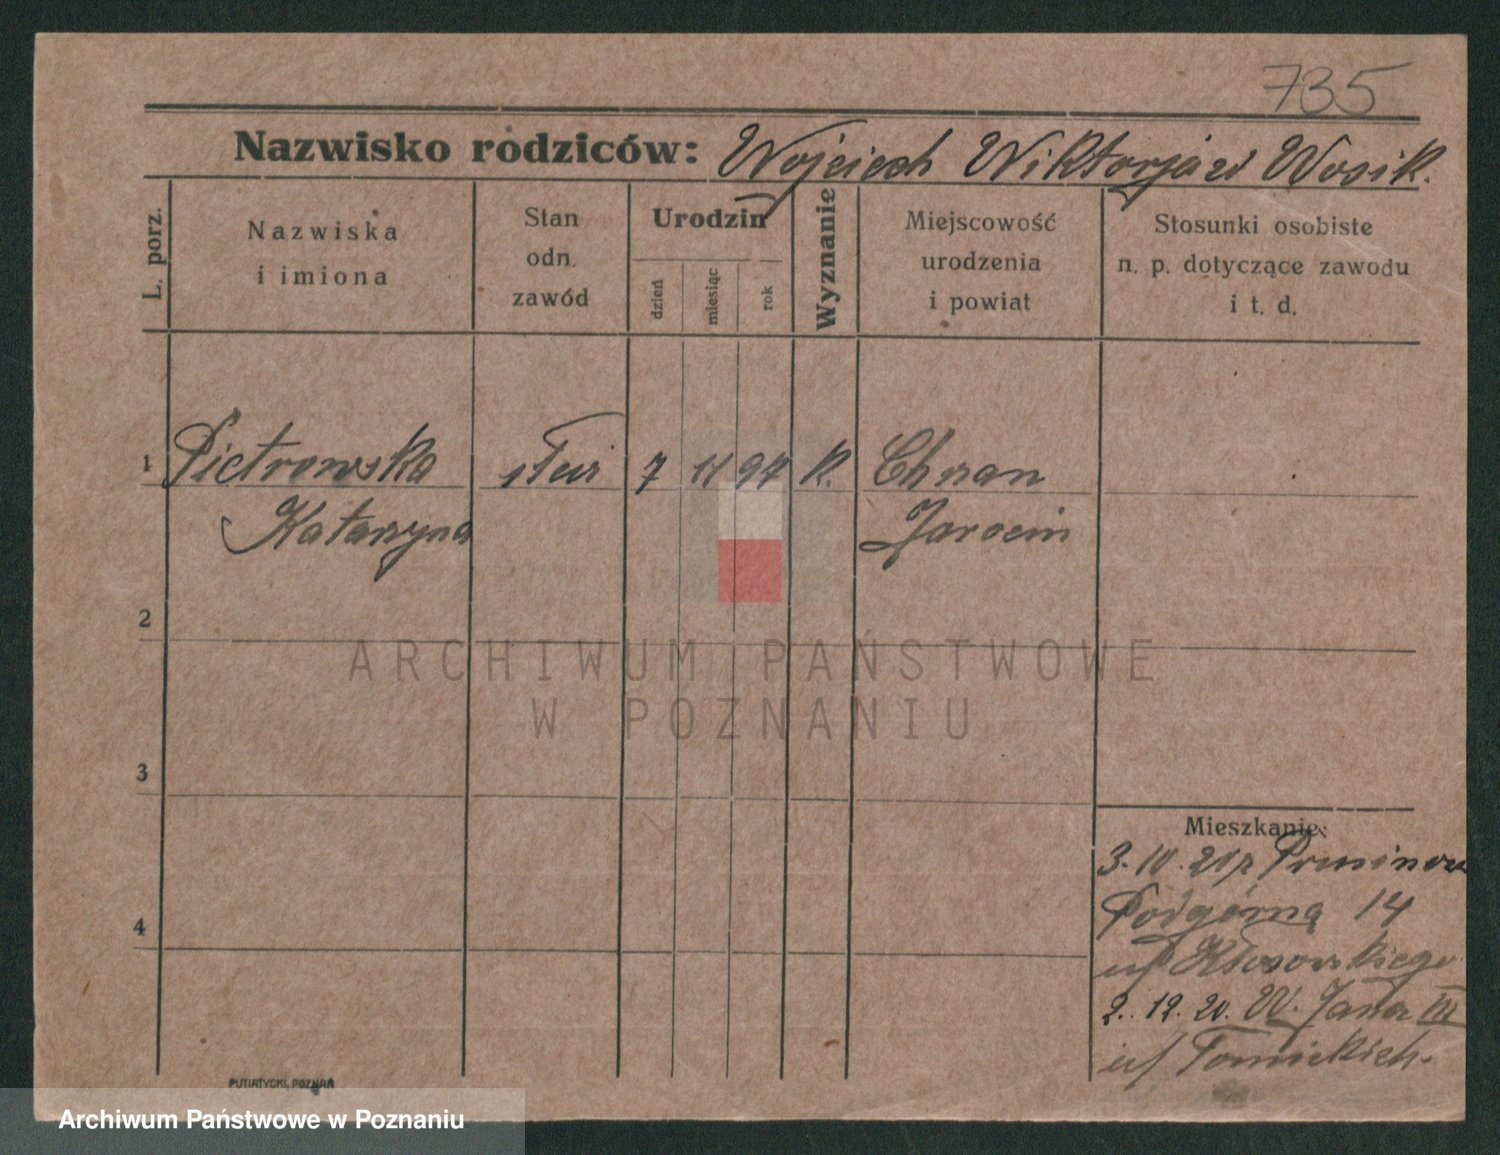 735
Nazwisko rodziców: Wojciech Wiktorja zd Wosik.
L. porz.
Nazwiska
i imiona
Stan
odn.
zawód
Urodzin
dzień
miesiąc
rok
Wyznanie
Miejscowość
urodzenia
i powiat
Stosunki osobiste
n. p. dotyczące zawodu
i t. d.
1 Pietrowska służ 7 11 97 k. Chrzan
Katarzyna Jarocin
2
ARCHIWUM PAŃSTWOWE
W POZNANIU
3
4
Mieszkanie:
3. 10. 20 z
Podgórna 14
u/ Kłosowskiego
2. 12. 20. W. Jana III
u/ Tomickich.
PUTIATYCKI, POZNAŃ
Archiwum Państwowe w Poznaniu